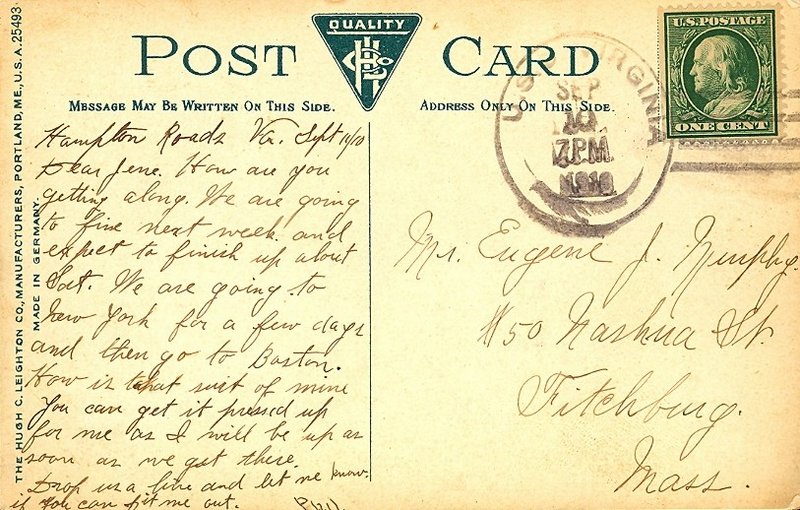 QUALITY
POST CARD
H C L Co
U.S. POSTAGE
ONE CENT
U.S.S. VIRGINIA
SEP
7 PM
1910
MESSAGE MAY BE WRITTEN ON THIS SIDE.
ADDRESS ONLY ON THIS SIDE.
THE HUGH C. LEIGHTON CO., MANUFACTURERS, PORTLAND, ME., U.S.A. 25493
MADE IN GERMANY.
Hampton Roads Va. Sept 11/10
Dear Jene. How are you
getting along. We are going
to fire next week and
expect to finish up about
Sat. We are going to
New York for a few days
and then go to Boston.
How is that suit of mine
You can get it pressed up
for me as I will be up as
soon as we get there.
Drop us a line and let me know
if you can fit me out.
Phil.
Mr. Eugene J. Murphy.
#50 Nashua St.
Fitchburg.
Mass.